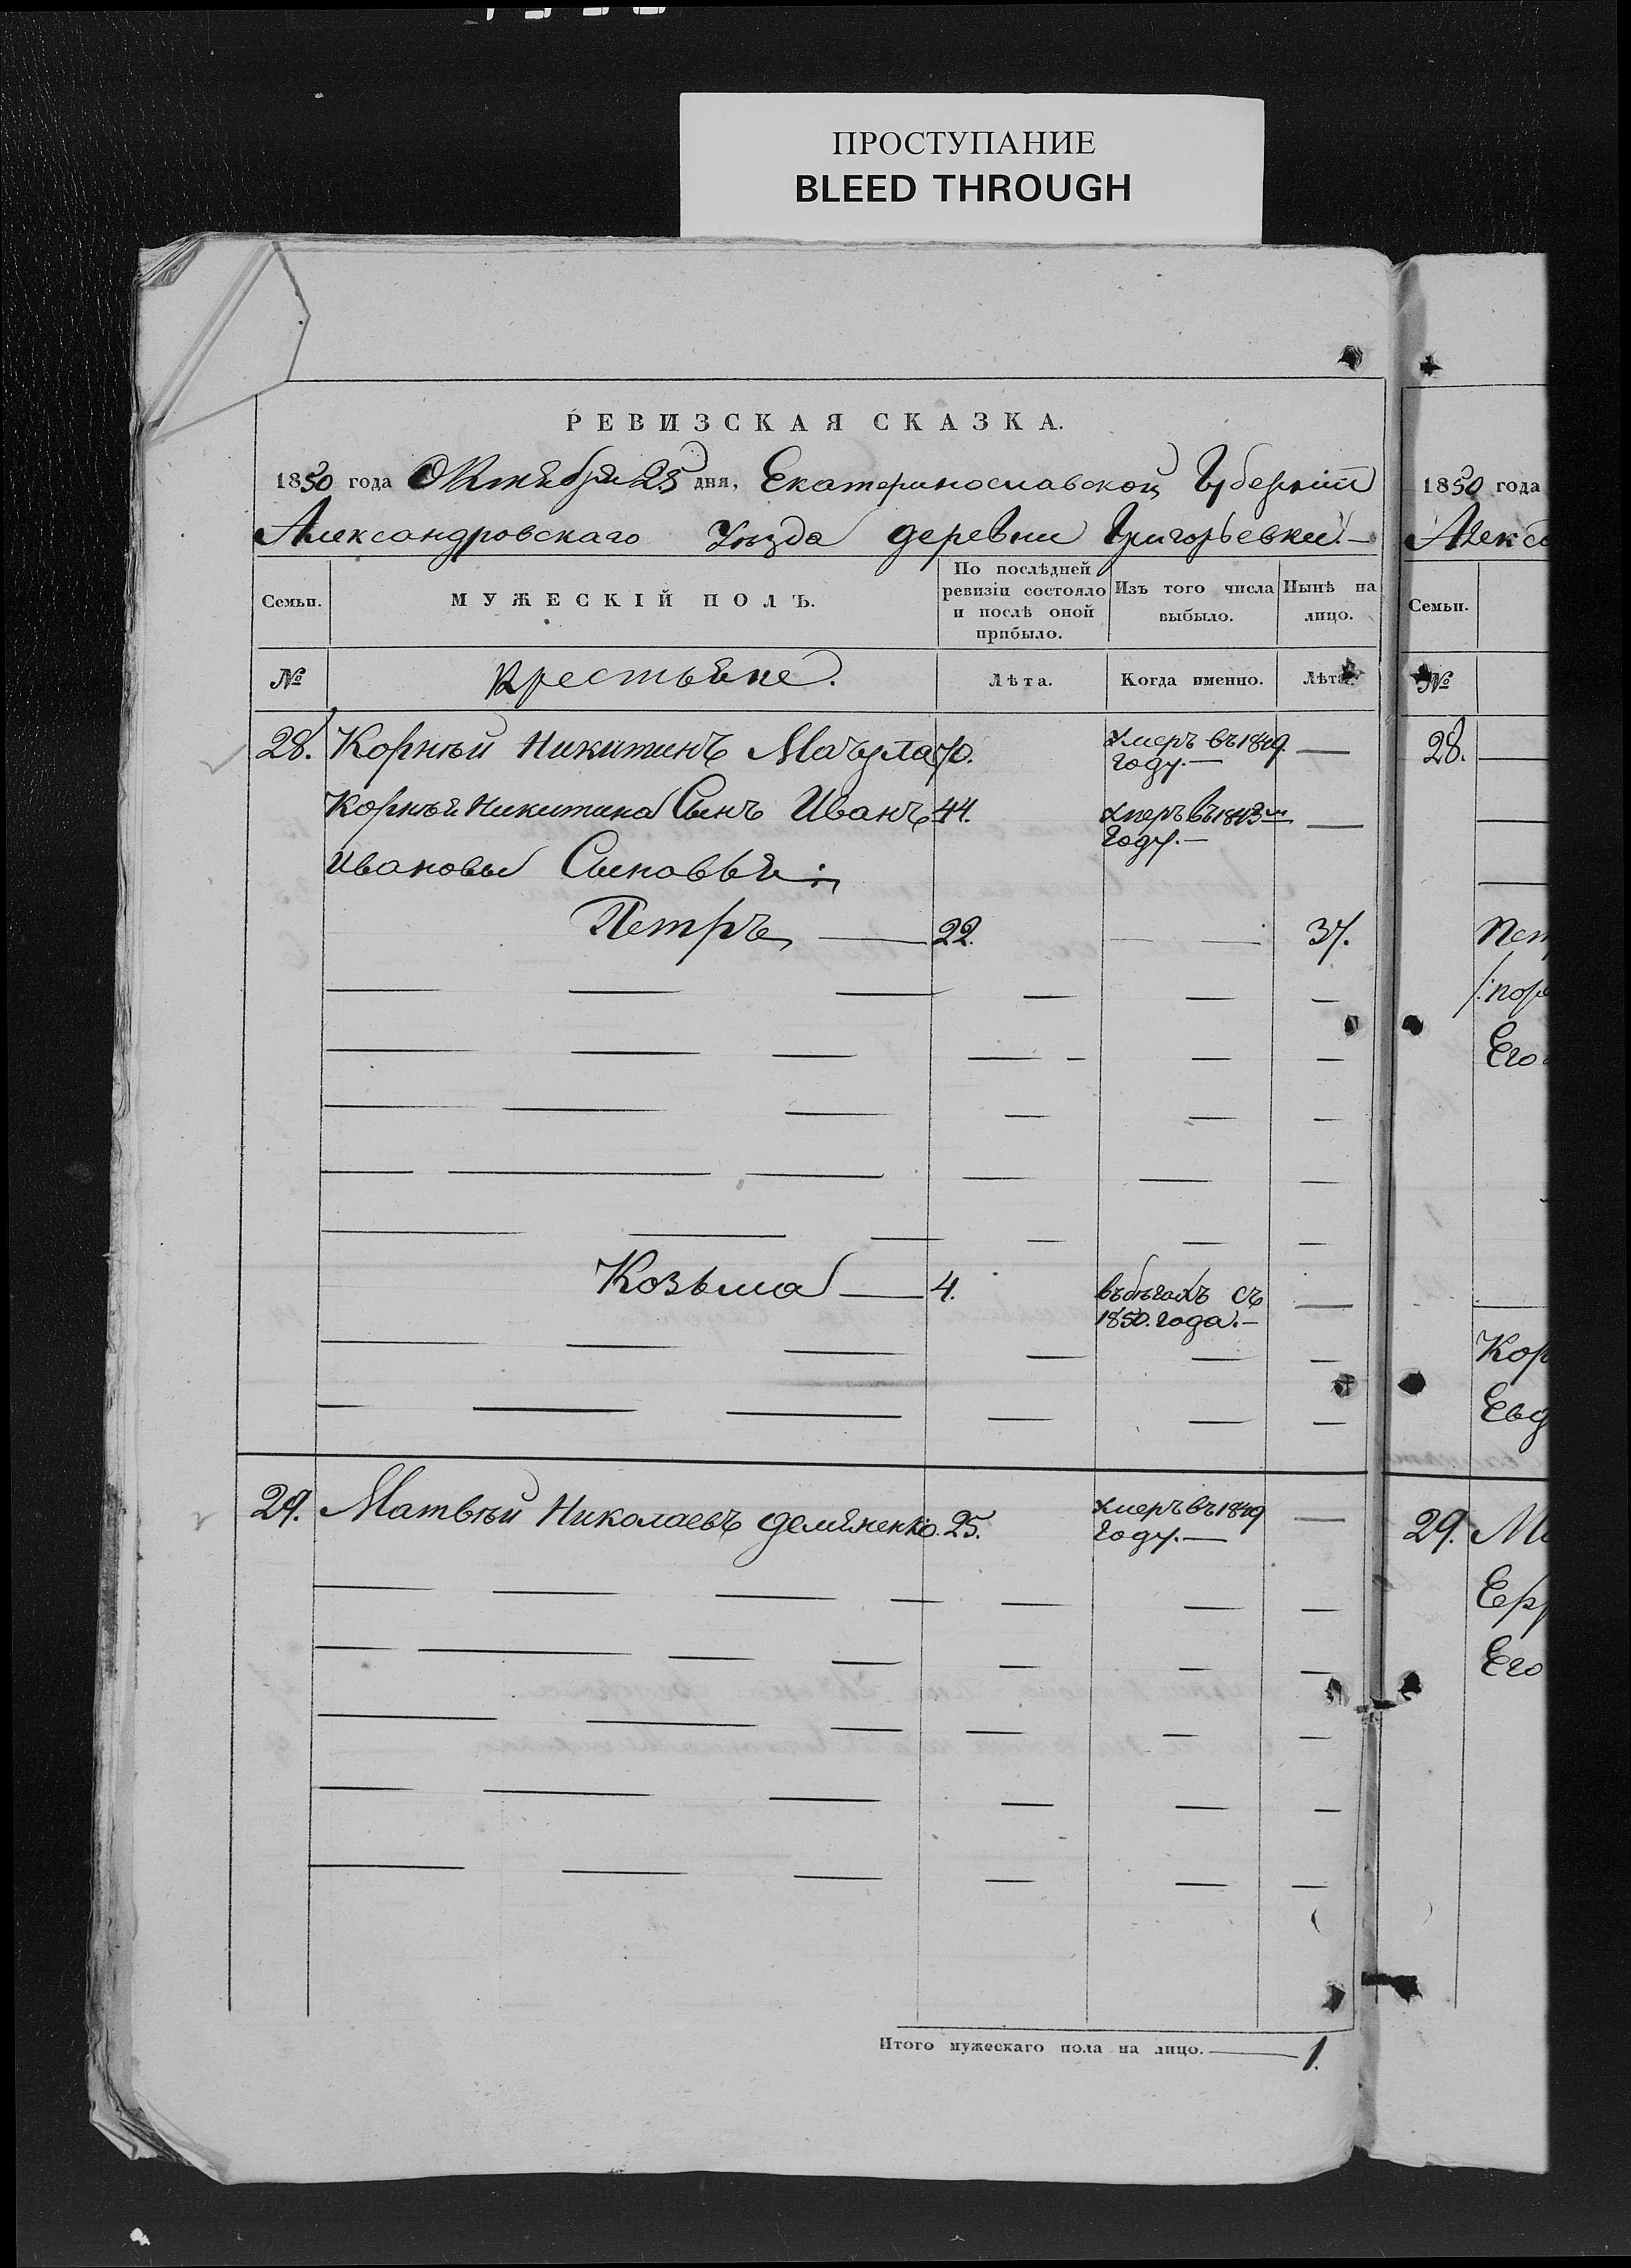 ПРОСТУПАНИЕ
BLEED THROUGH
РЕВИЗСКАЯ СКАЗКА.
1850 года Октября 25 дня, Екатеринославской Губерніи
Александровскаго Уѣзда деревни Григорьевки.—
Семьи. МУЖЕСКІЙ ПОЛЪ. По послѣдней ревизіи состояло и послѣ оной прибыло. Изъ того числа выбыло. Нынѣ на лицо.
№ Крестьяне. Лѣта. Когда именно. Лѣта.
28. Корнѣй Никитинъ 70. Умеръ въ 1849 году.— —
Корнѣя Никитина Сынъ Иванъ 44. Умеръ въ 1843м году.— —
Ивановы Сыновья:
Петръ — 22. — — 37.
Козьма — 4. въ бѣгахъ съ 1850. года.— —
29. Матвѣй Николаевъ Демяненко. 25. Умеръ въ 1849 году.— —
Итого мужескаго пола на лицо. — 1.
1850 года
Алекс
Семьи.
№
28.
Пет
/:пор
Его
Кор
Евд
29. М
Его